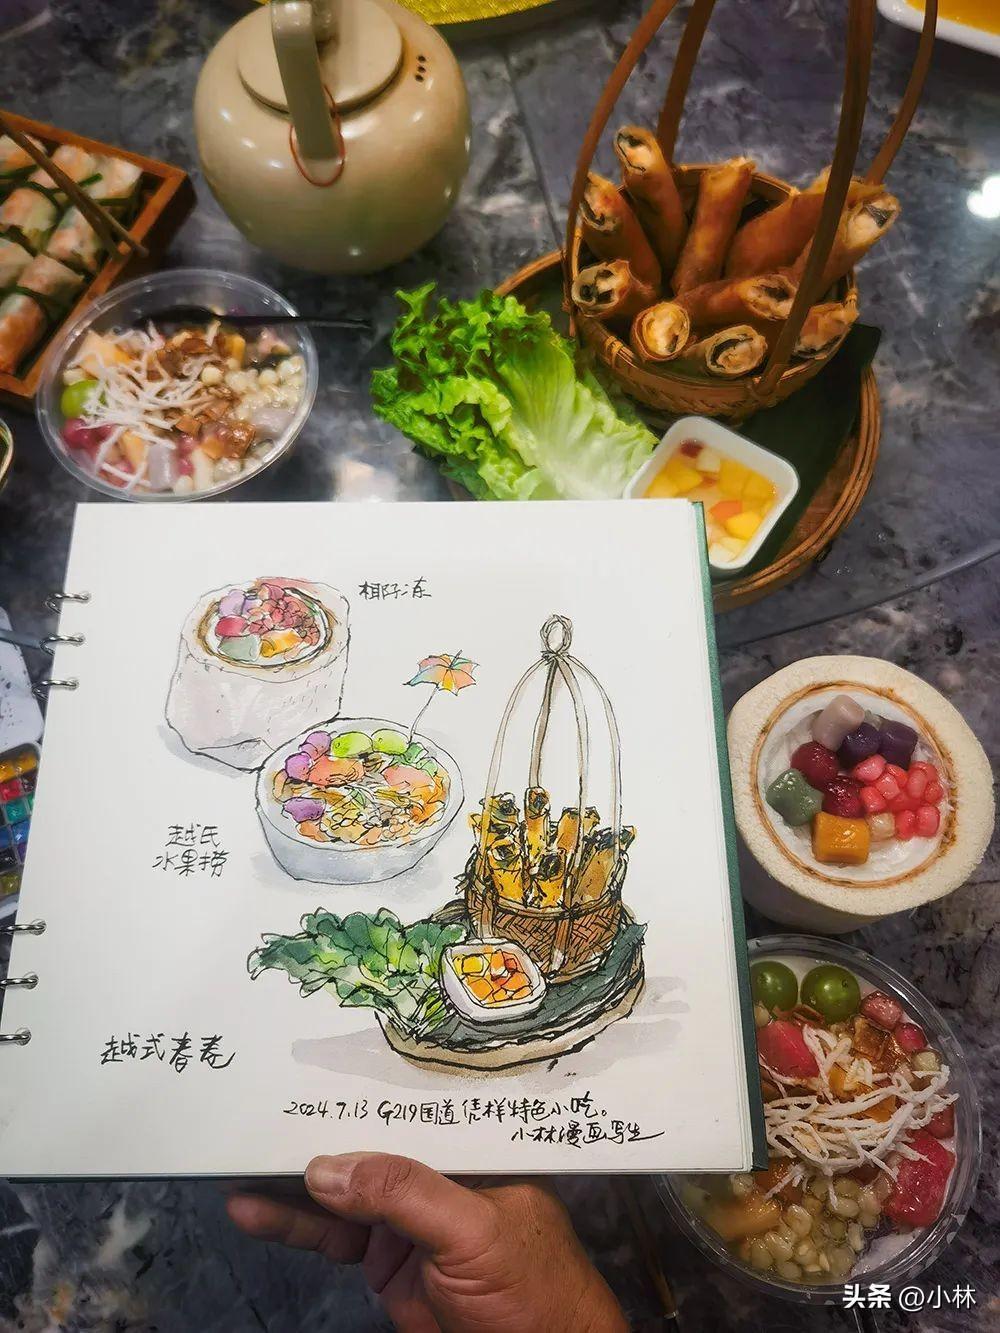 椰子冻
越氏
水果捞
越式春卷
2024.7.13 G219国道凭祥特色小吃。
小林漫画写生
头条 @小林